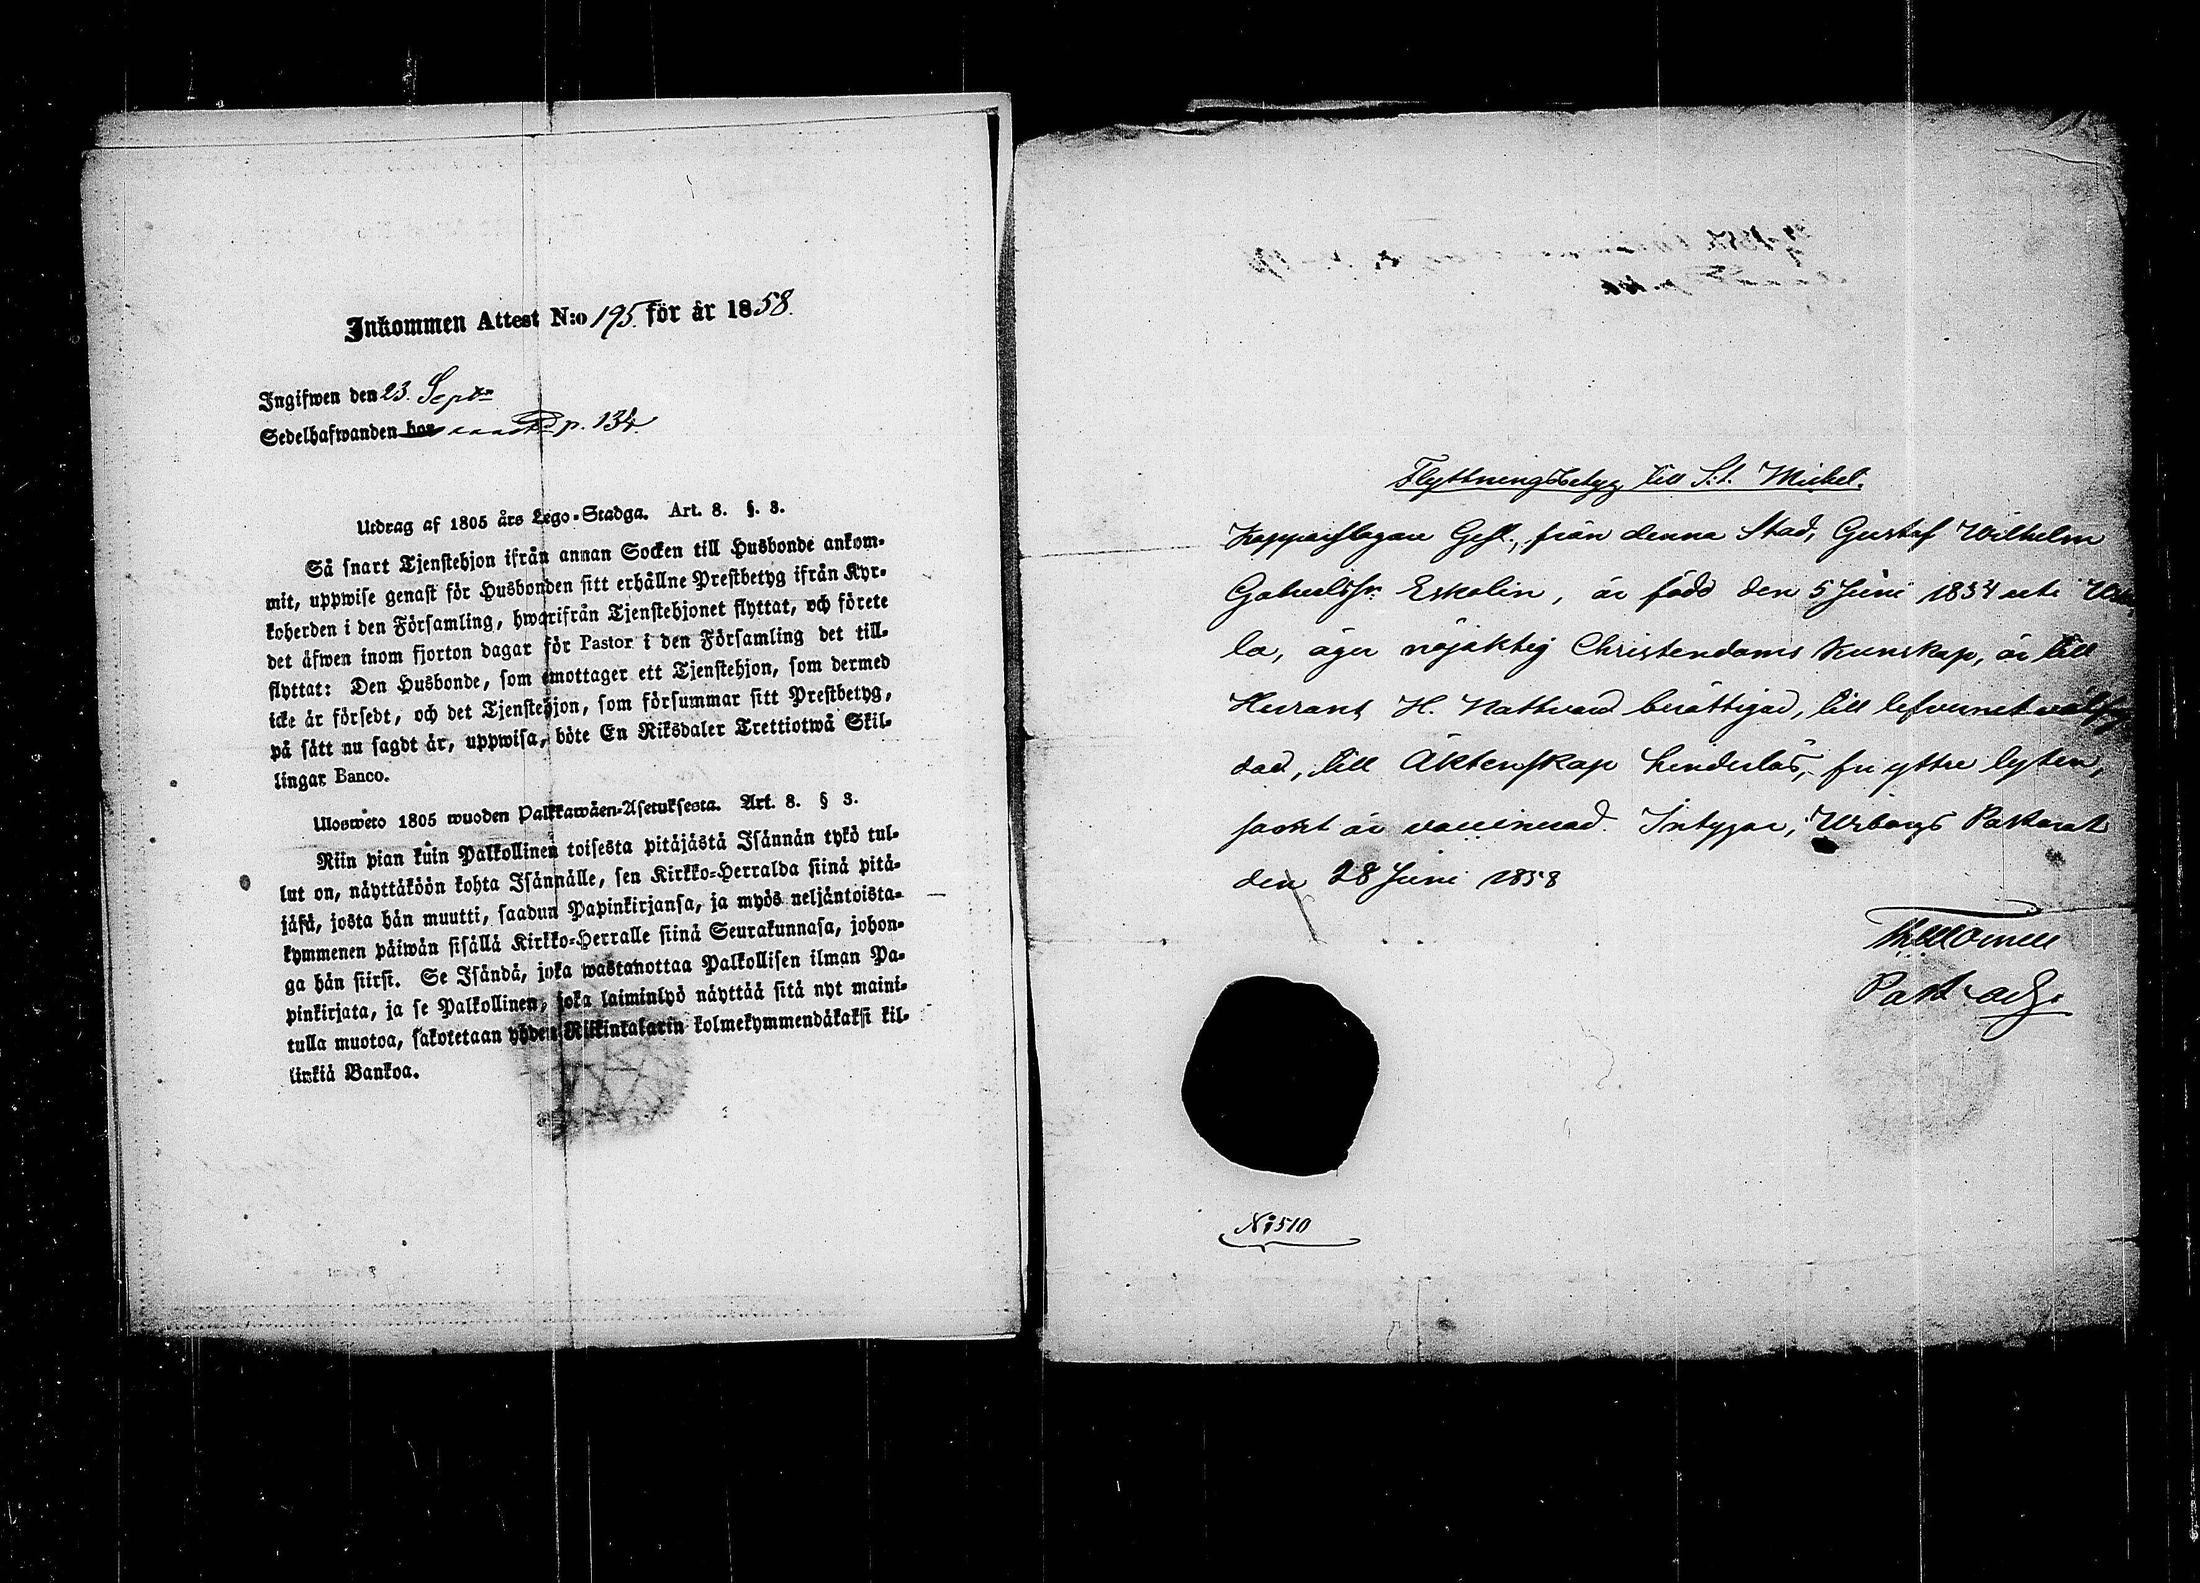 Inkommen Attest N:o 195. för år 1858.
Ingifwen den 23. Sept:
Sedelhafwanden p. 134.
Utdrag af 1805 års Lego-Stadga. Art. 8. §. 3.
Så snart Tjenstehjon ifrån annan Socken till Husbonde ankom-
mit, uppwise genast för Husbonden sitt erhållne Prestbetyg ifrån Kyr-
koherden i den Församling, hwarifrån Tjenstehjonet flyttat, och förete
det äfwen inom fjorton dagar för Pastor i den Församling det till-
flyttat: Den Husbonde, som emottager ett Tjenstehjon, som dermed
icke är försedt, och det Tjenstehjon, som försummar sitt Prestbetyg,
på sätt nu sagdt är, uppwisa, böte En Riksdaler Trettiotwå Skil-
lingar Banco.
Ulosweto 1805 wuoden Palkkawäen-Asetuksesta. Art. 8. § 3.
Niin pian kuin Palkollinen toisesta pitäjästä Isännän tykö tul-
lut on, näyttäköön kohta Isännälle, sen Kirkko-Herralda siinä pitä-
jäsä, josta hän muutti, saadun Papinkirjansa, ja myös neljäntoista-
kymmenen päiwän sisällä Kirkko-Herralle siinä Seurakunnasa, johon-
ga hän siirsi. Se Isändä, joka wastanottaa Palkollisen ilman Pa-
pinkirjata, ja se Palkollinen, joka laiminlyö näyttää sitä nyt maini-
tulla muotoa, sakotetaan yhden Riikintalarin kolmekymmendäkaksi kil-
linkiä Bankoa.
Flyttningsbetyg till S:t. Michel.
Kopparslagare Gesl., från denna Stad, Gustaf Wilhelm
Gabrielss:n Eskolin, är född den 5 Juni 1834 uti
la, äger nöjaktig Christendoms kunskap, är till
Herrans H. Nattvard berättigad, till lefvernet
dad, till Äktenskap hinderlös, fri yttre lyten,
samt är vaccinerad. Intygar, Wiborgs Pastorat
den 28 Juni 1858
Past. adj.
N: 510